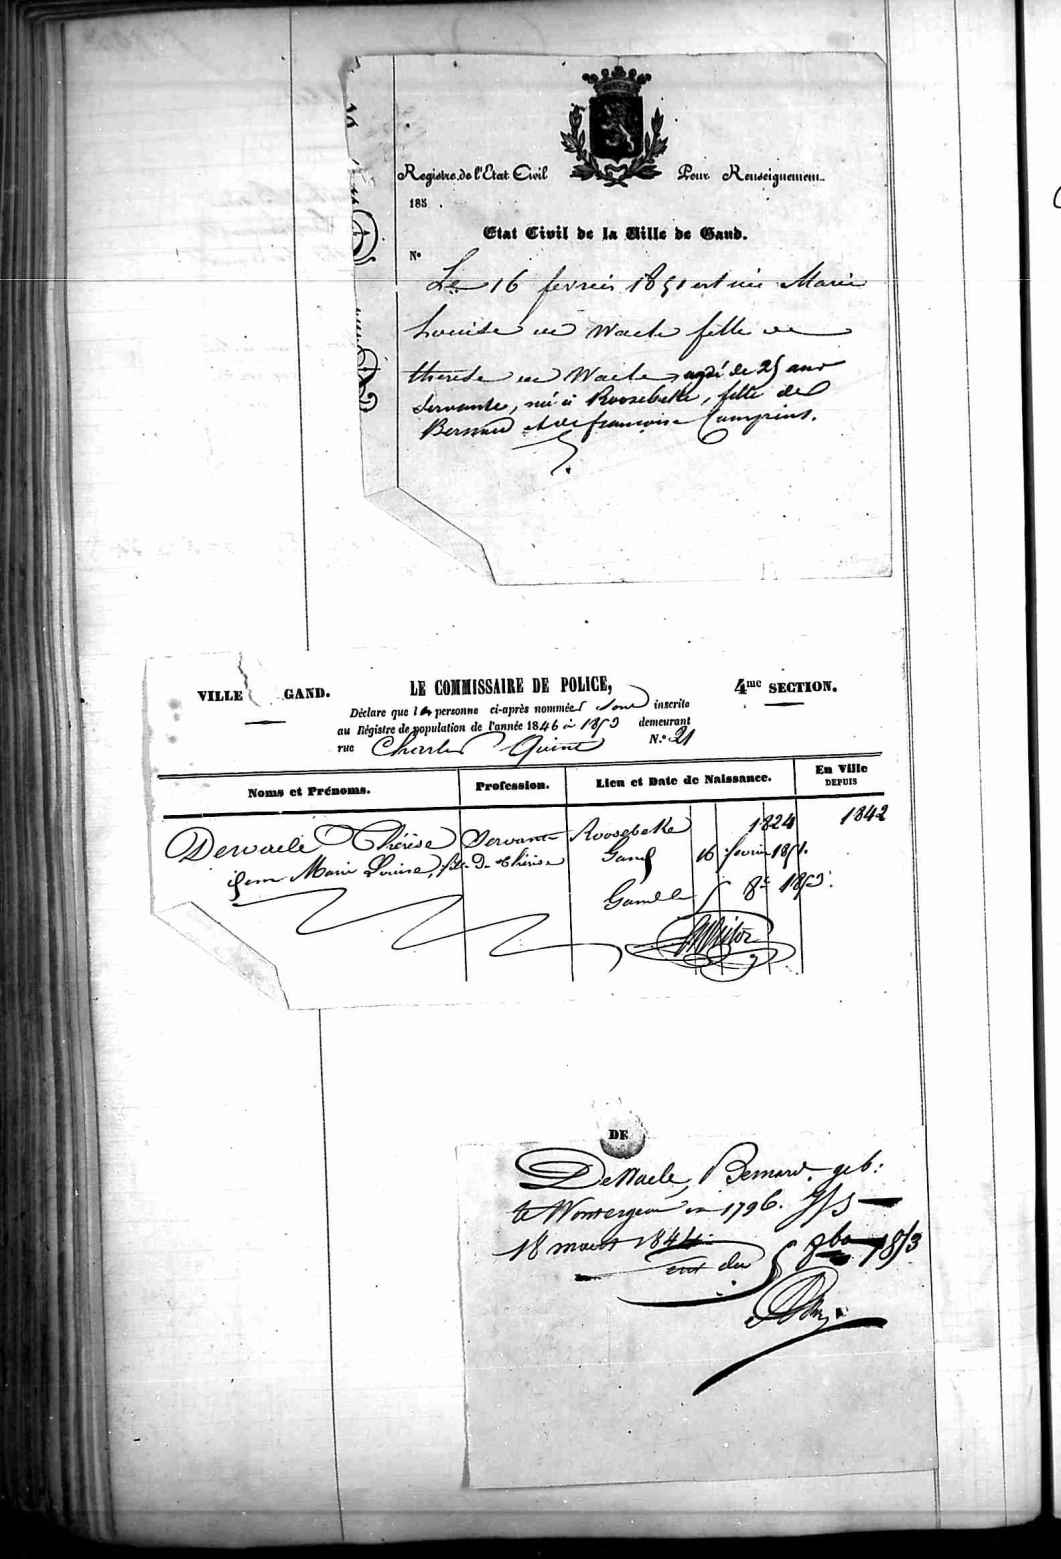 Registre de l'Etat Civil Pour Renseignement.
185
Etat Civil de la Ville de Gand.
N°
Le 16 fevrier 1851 est née Marie
Louise de Waele fille de
thérèse de Waele agé de 25 ans
servante, né à Roosebeke, fille de
Bernard et de francoise Camprins.
VILLE GAND.
LE COMMISSAIRE DE POLICE,
4me SECTION.
Déclare que la personne ci-après nommées sont inscrite
au Régistre de population de l'année 1846 à 1853 demeurant
rue Charles Quint N.° 21
Noms et Prénoms. Profession. Lieu et Date de Naissance. En Ville DEPUIS
Dewaele Thérèse Servante Roosebeke 1824 1842
idem Marie Louise, fle De Thérèse Gand 16 fevrier 1851.
Gand le 5 8e 1853.
DE
DeWaele, Bernard, geb:
te Wontergem in 1796.
18 maart 1844
5 8bo 1853